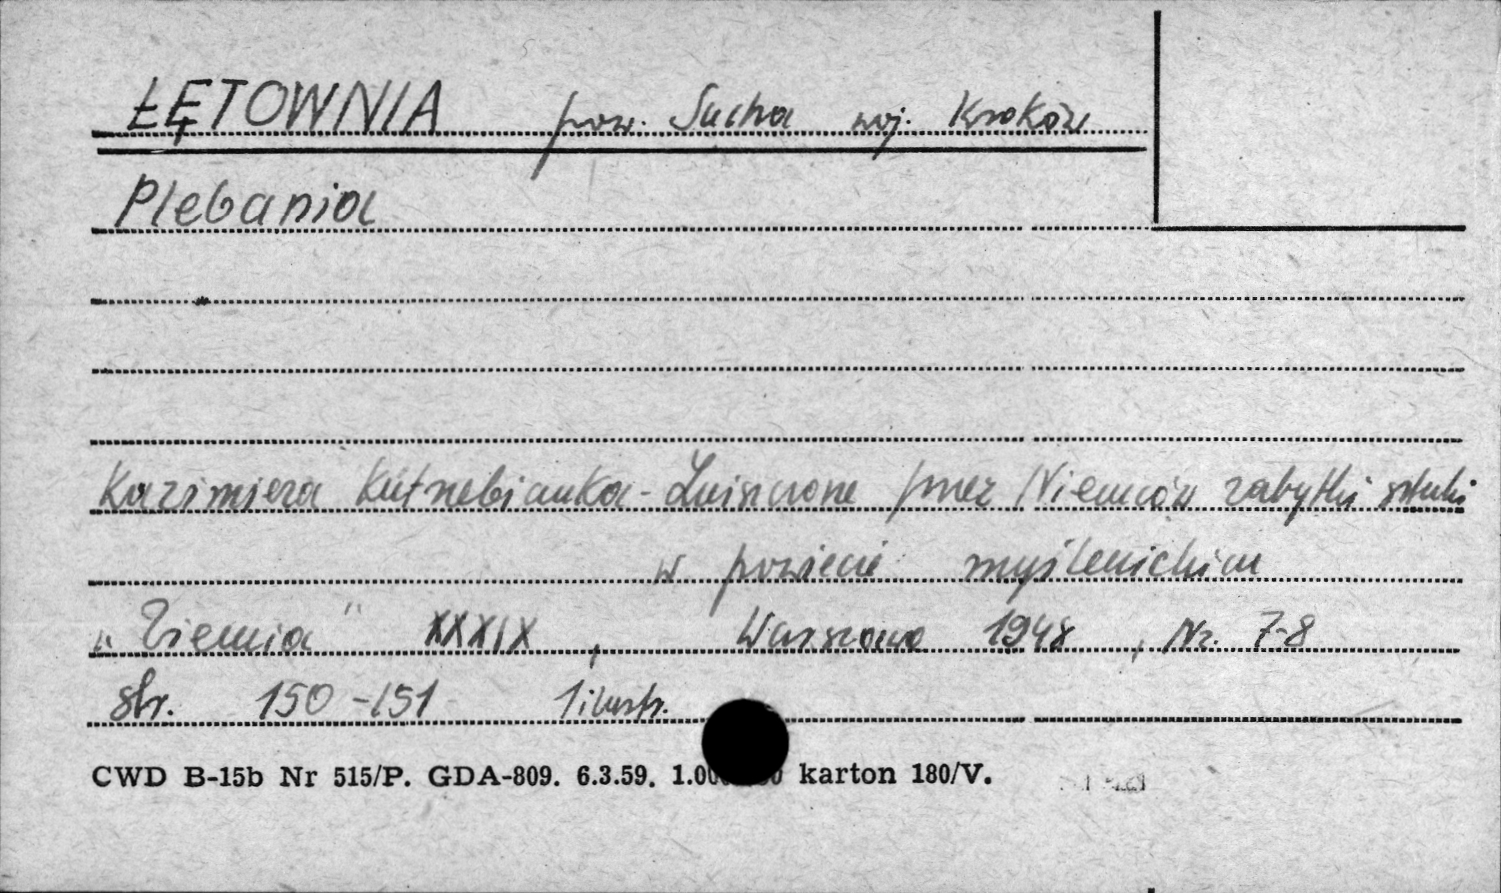 ŁĘTOWNIA pow. Sucha woj. Kraków
Plebania
Kazimiera Kutrzebianka - Zniszczone przez Niemców zabytki sztuki
w powiecie myślenickim
"Ziemia" XXXIX, Warszawa 1948, Nr. 7-8
str. 150-151 1 ilustr.
CWD B-15b Nr 515/P. GDA-809. 6.3.59. karton 180/V.